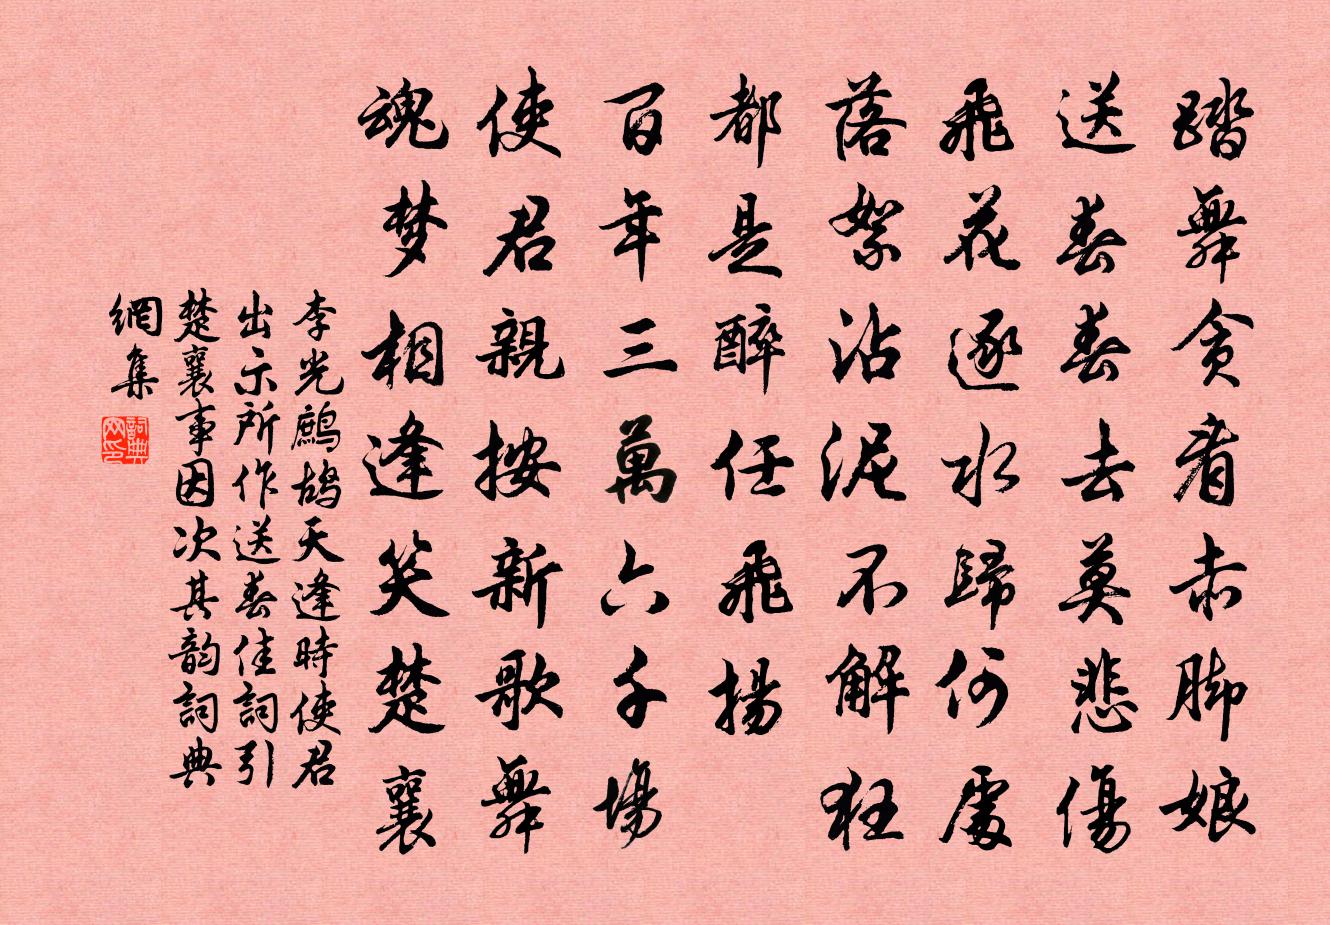 踏舞貪看赤脚娘
送春春去莫悲傷
飛花逐水歸何處
落絮沾泥不解狂
都是醉任飛揚
百年三萬六千場
使君親按新歌舞
魂梦相逢笑楚襄
李光鷓鴣天逢時使君
出示所作送春佳詞引
楚襄事因次其韵詞典
網集
詞典網印